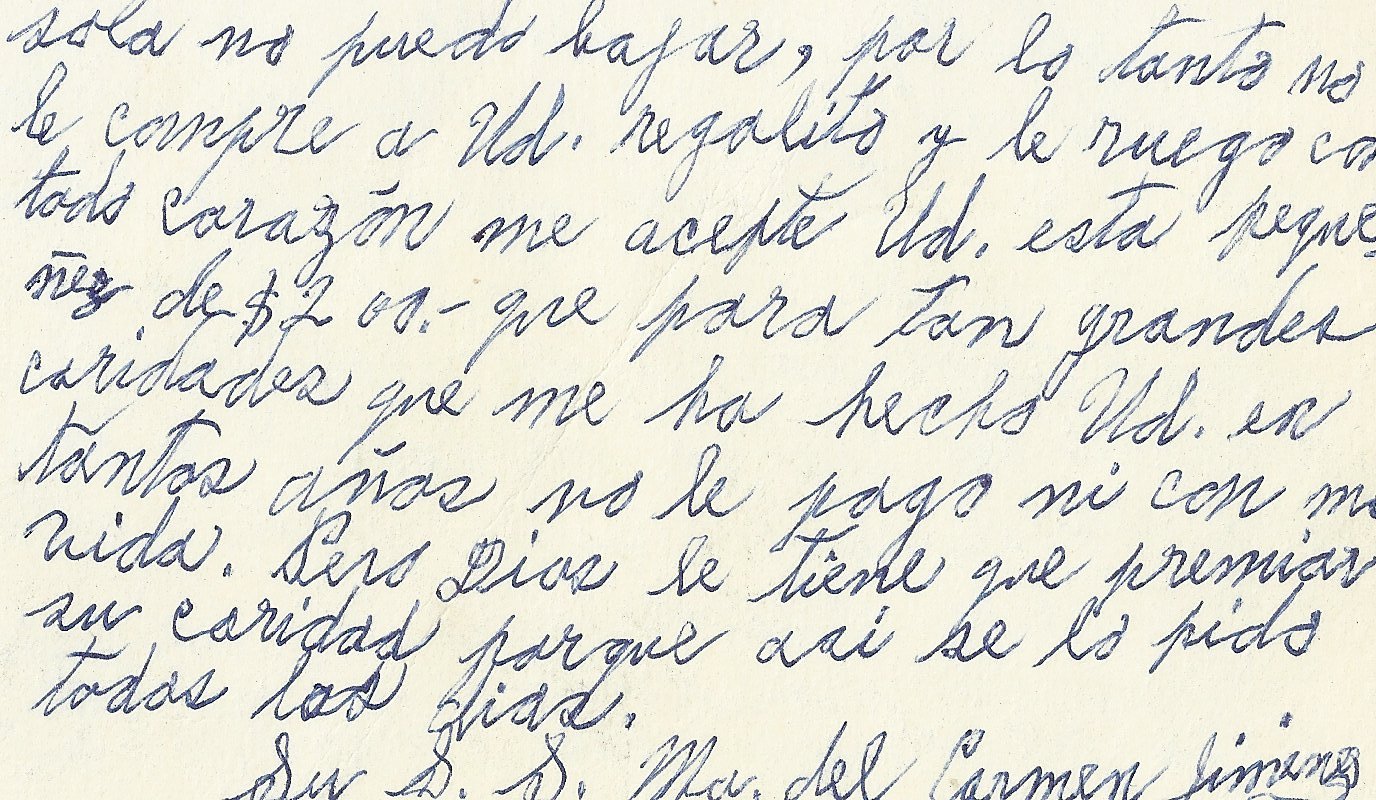 sola no puedo bajar, por lo tanto no
le compre a Ud. regalito y le ruego con
todo corazón me acepte Ud. esta peque-
ñez de $2 00.- que para tan grandes
caridades que me ha hecho Ud. en
tantos años no le pago ni con mi
vida. Pero Dios le tiene que premiar
su caridad porque asi se lo pido
todos los dias.
Su S. S. Ma. del Carmen Jimenez